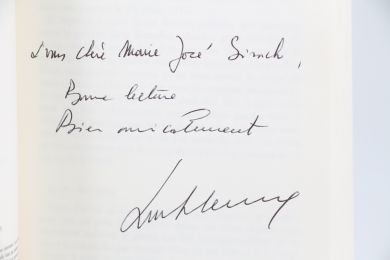 chère Marie José
Bonne lecture
Bien amicalement